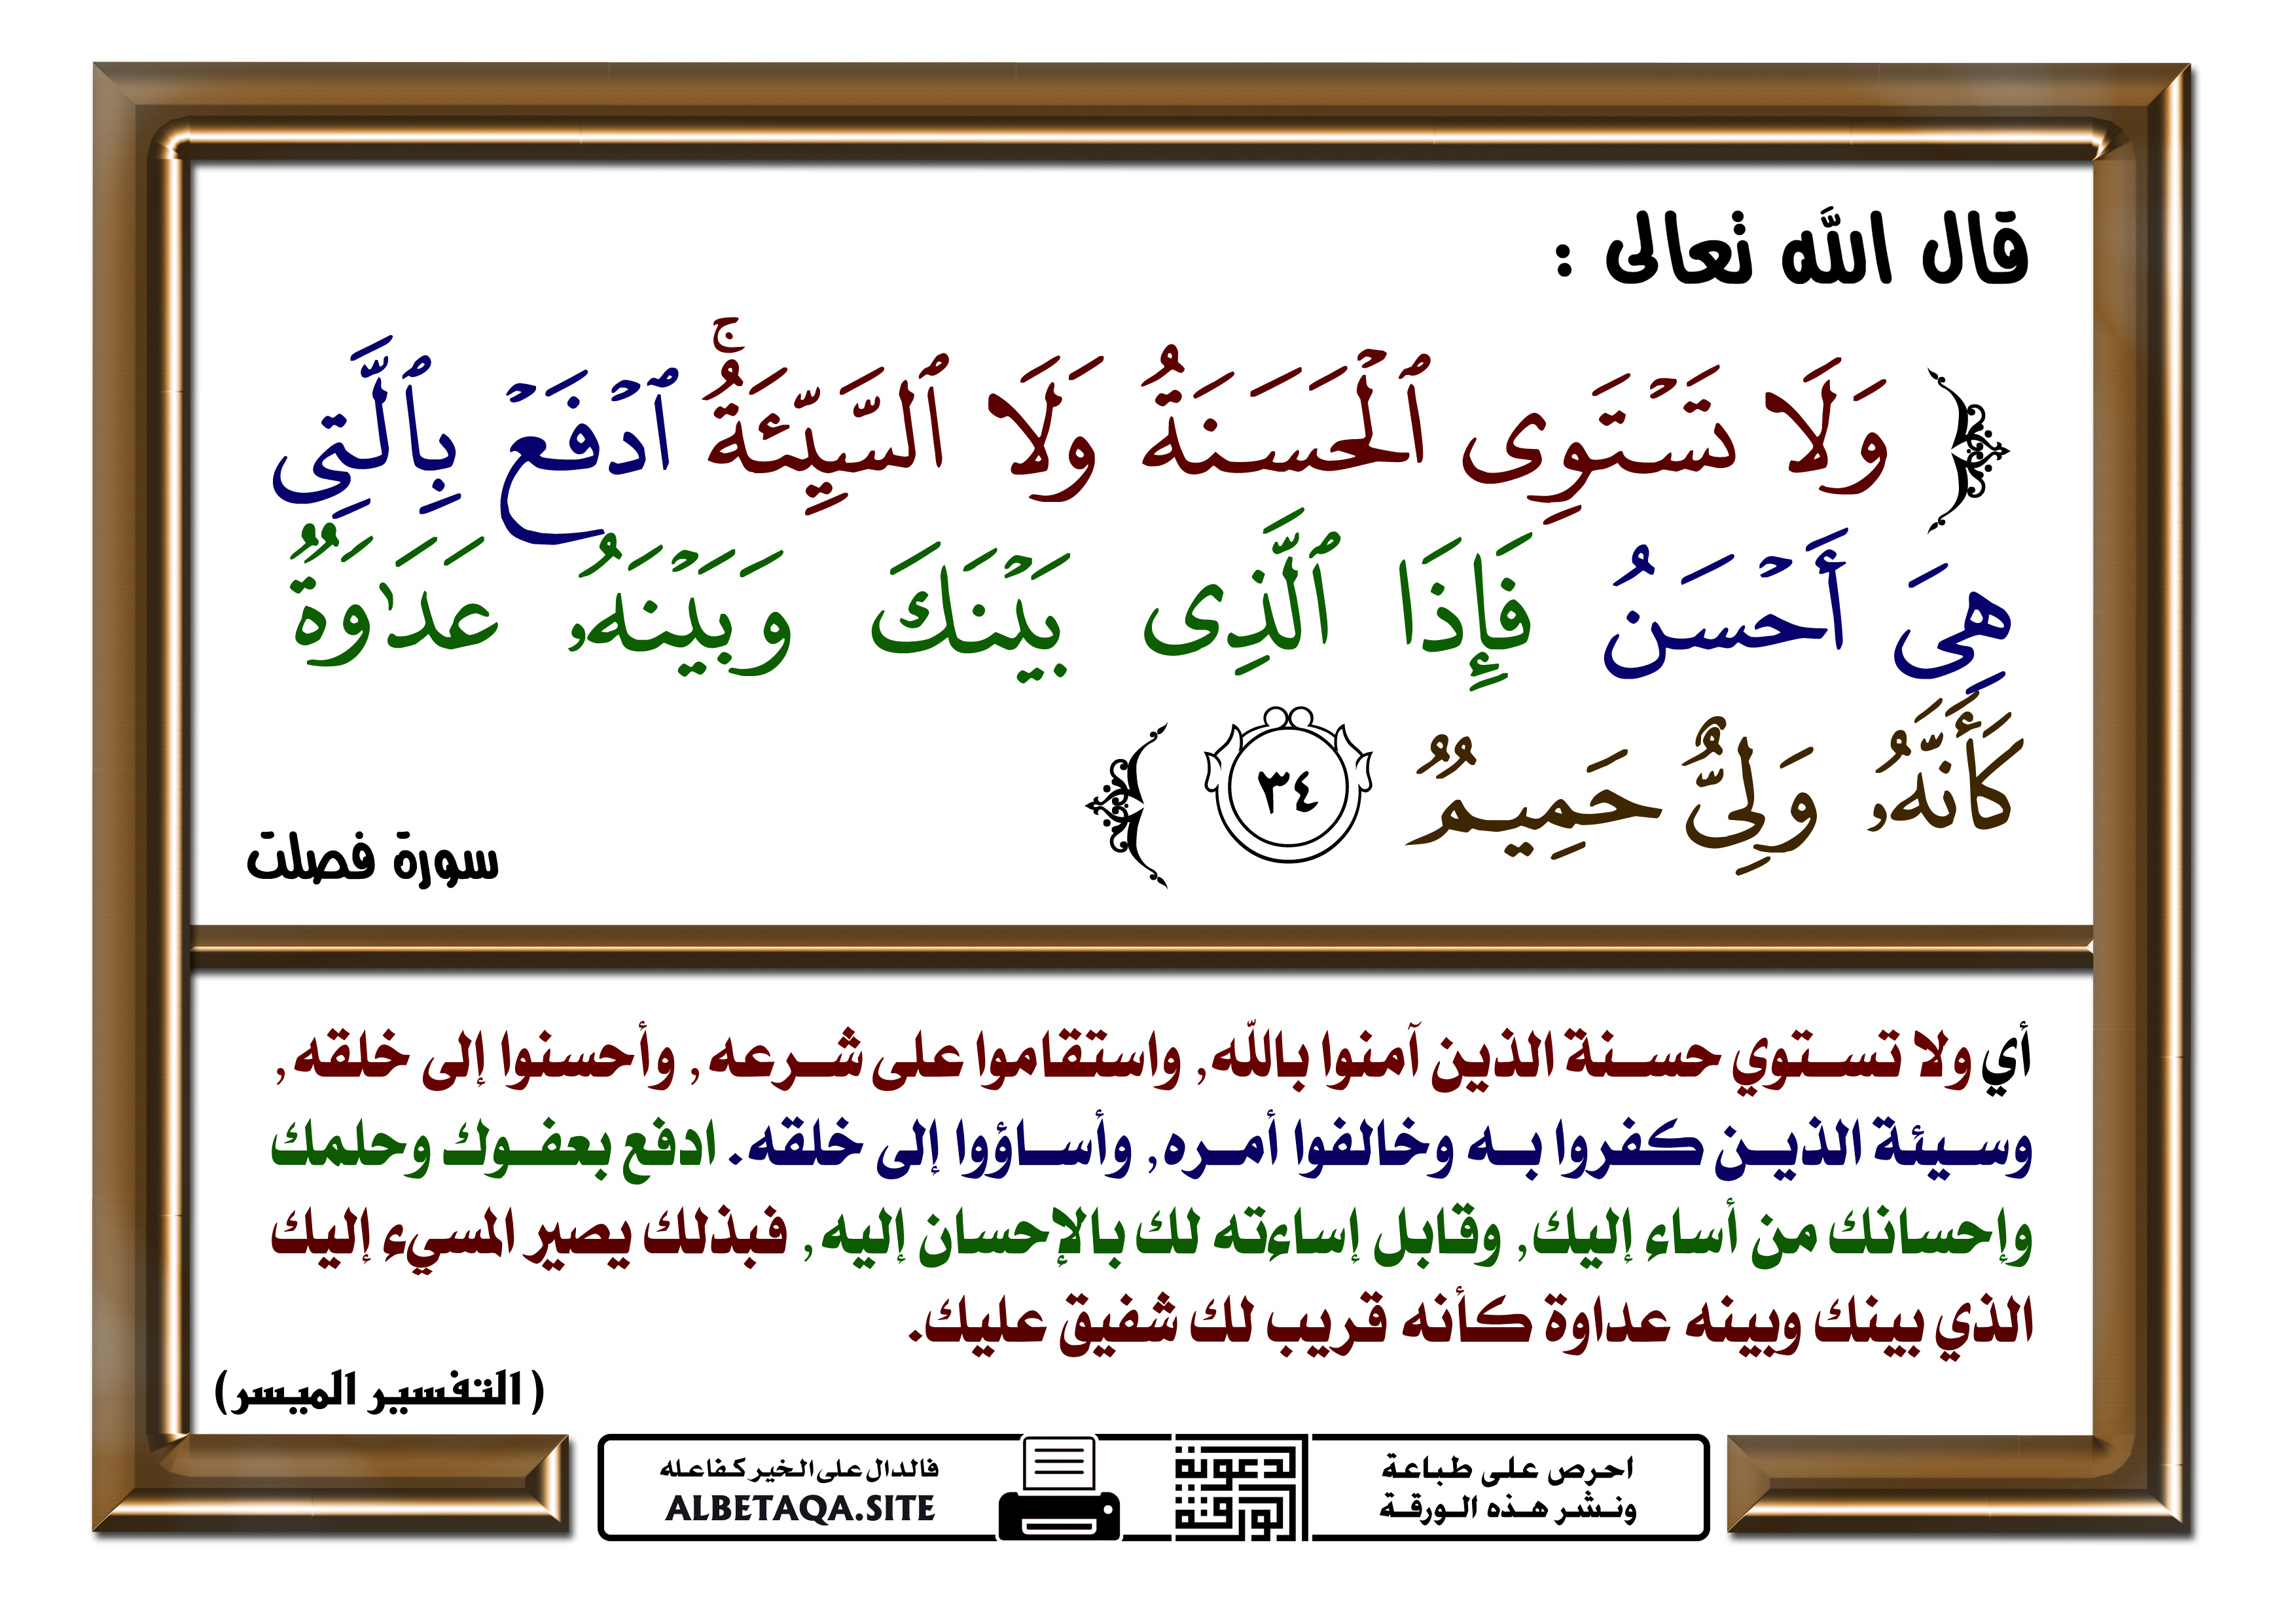 قال الله تعالى :
﴿ وَلَا تَسۡتَوِي ٱلۡحَسَنَةُ وَلَا ٱلسَّيِّئَةُۚ ٱدۡفَعۡ بِٱلَّتِي
هِيَ أَحۡسَنُ فَإِذَا ٱلَّذِي بَيۡنَكَ وَبَيۡنَهُۥ عَدَٰوَةٞ
كَأَنَّهُۥ وَلِيٌّ حَمِيمٞ ٣٤ ﴾
سورة فصلت
أي ولا تستوي حسنة الذين آمنوا بالله, واستقاموا على شرعه, وأحسنوا إلى خلقه,
وسيئة الذين كفروا به وخالفوا أمره, وأساؤوا إلى خلقه. ادفع بعفوك وحلمك
وإحسانك من أساء إليك, وقابل إساءته لك بالإحسان إليه, فبذلك يصير المسيء إليك
الذي بينك وبينه عداوة كأنه قريب لك شفيق عليك.
( التفسير الميسر)
احرص على طباعة
ونشر هذه الورقة
الدعوية
الورقة
فالدال على الخير كفاعله
ALBETAQA.SITE